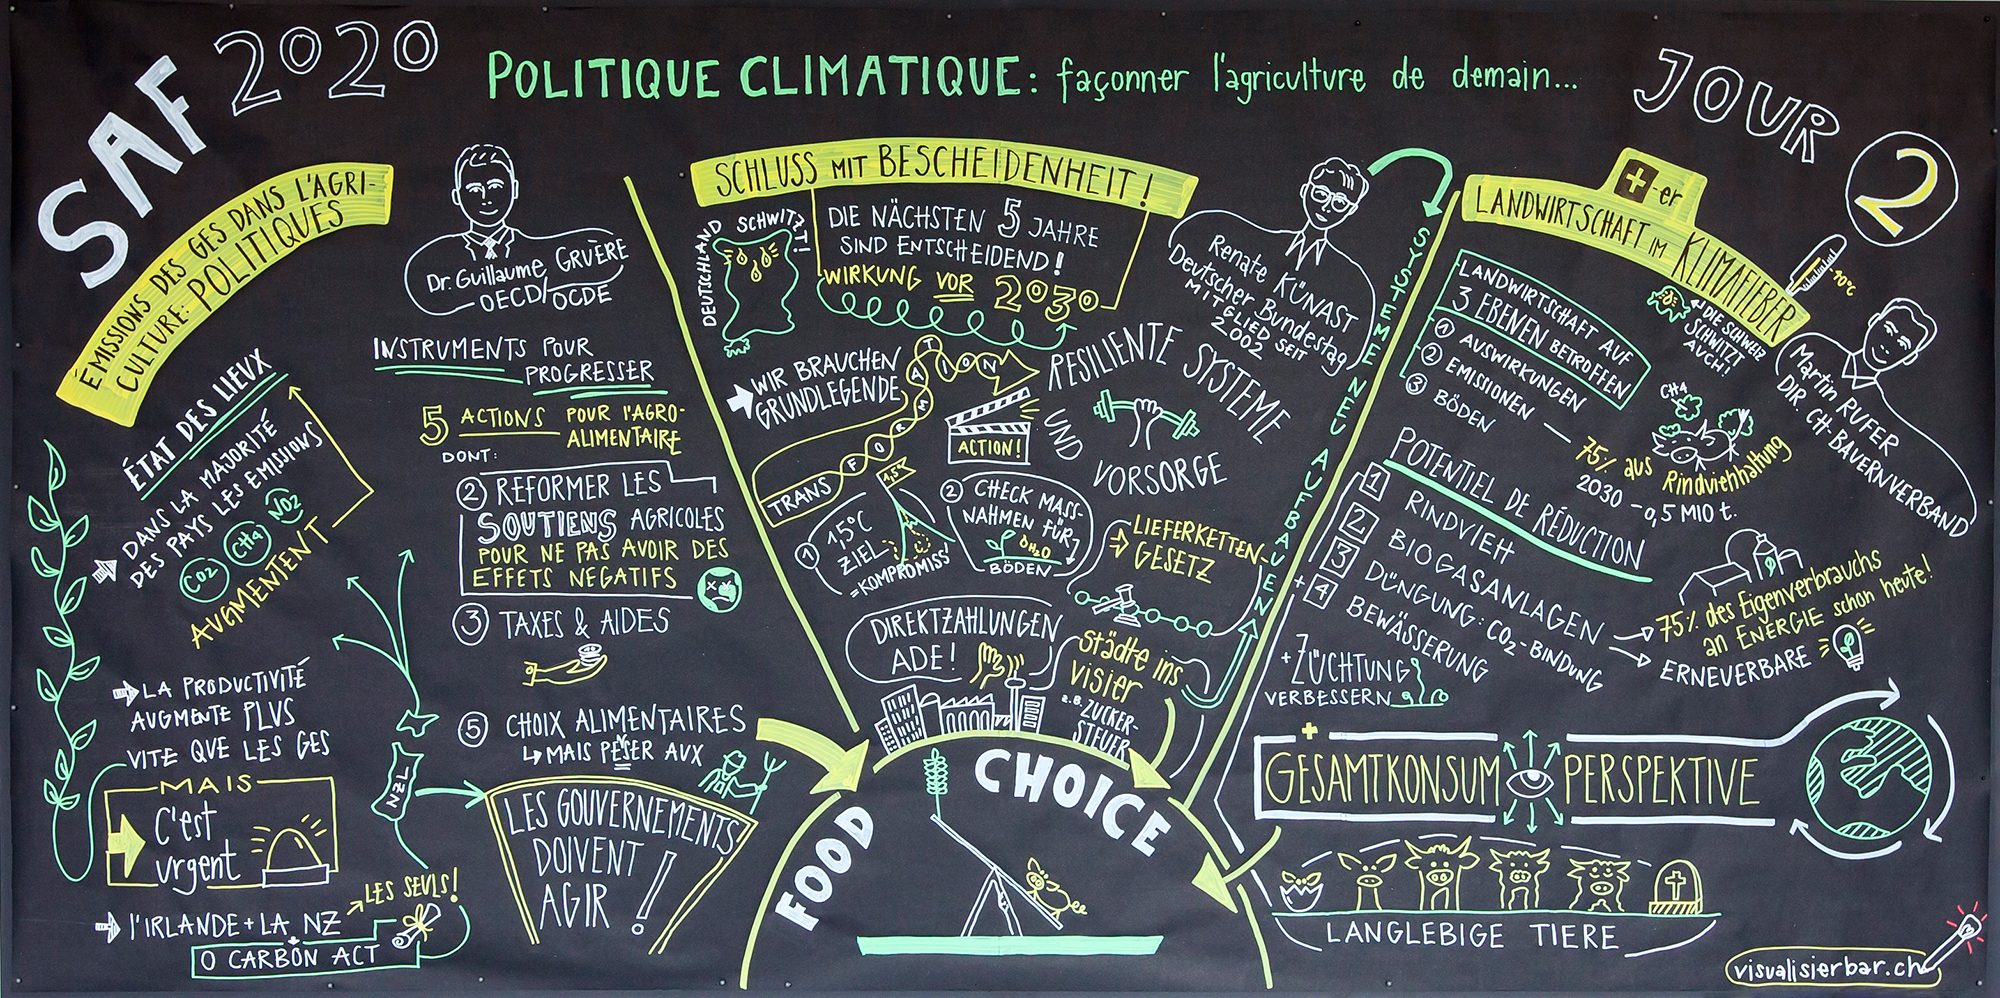 SAF 2020
POLITIQUE CLIMATIQUE: façonner l'agriculture de demain...
JOUR 2
ÉMISSIONS DES GES DANS L'AGRI-
CULTURE: POLITIQUES
Dr. Guillaume GRUÈRE
OECD/OCDE
ÉTAT DES LIEUX
DANS LA MAJORITÉ
DES PAYS LES EMISSIONS
CO2 CH4 NO2
AUGMENTENT
LA PRODUCTIVITÉ
AUGMENTE PLUS
VITE QUE LES GES
MAIS
C'est
urgent
l'IRLANDE + LA NZ
LES SEULS!
0 CARBON ACT
NZL
INSTRUMENTS POUR
PROGRESSER
5 ACTIONS POUR l'AGRO-
ALIMENTAIRE
DONT:
2 REFORMER LES
SOUTIENS AGRICOLES
POUR NE PAS AVOIR DES
EFFETS NEGATIFS
3 TAXES & AIDES
5 CHOIX ALIMENTAIRES
MAIS PESER AUX
LES GOUVERNEMENTS
DOIVENT
AGIR!
SCHLUSS MIT BESCHEIDENHEIT!
DEUTSCHLAND SCHWITZT!
DIE NÄCHSTEN 5 JAHRE
SIND ENTSCHEIDEND!
WIRKUNG VOR 2030
Renate KÜNAST
Deutscher Bundestag
MITGLIED SEIT
2002
WIR BRAUCHEN
GRUNDLEGENDE
TRANSFORMATION
ACTION!
RESILIENTE SYSTEME
UND
VORSORGE
1,5°
1 1,5°C
ZIEL
= KOMPROMISS
2 CHECK MASS-
NAHMEN FÜR
H2O
BÖDEN
LIEFERKETTEN-
GESETZ
DIREKTZAHLUNGEN
ADE!
Städte ins
visier
z.B. ZUCKER-
STEUER
SYSTEME NEU AUFBAUEN
FOOD CHOICE
+-er
LANDWIRTSCHAFT IM KLIMAFIEBER
40°C
LANDWIRTSCHAFT AUF
3 EBENEN BETROFFEN
1 AUSWIRKUNGEN
2 EMISSIONEN
3 BÖDEN
DIE SCHWEIZ
SCHWITZT
AUCH!
CH4
75% aus
Rindviehhaltung
2030 -0,5 MIO t.
Martin RUFER
DIR. CH-BAUERNVERBAND
POTENTIEL DE RÉDUCTION
1 RINDVIEH
2 BIOGASANLAGEN
3 DÜNGUNG: CO2-BINDUNG
+ 4 BEWÄSSERUNG
+ ZÜCHTUNG
VERBESSERN
75% des Eigenverbrauchs
an ENERGIE schon heute!
ERNEUERBARE
+
GESAMTKONSUM PERSPEKTIVE
LANGLEBIGE TIERE
visualisierbar.ch